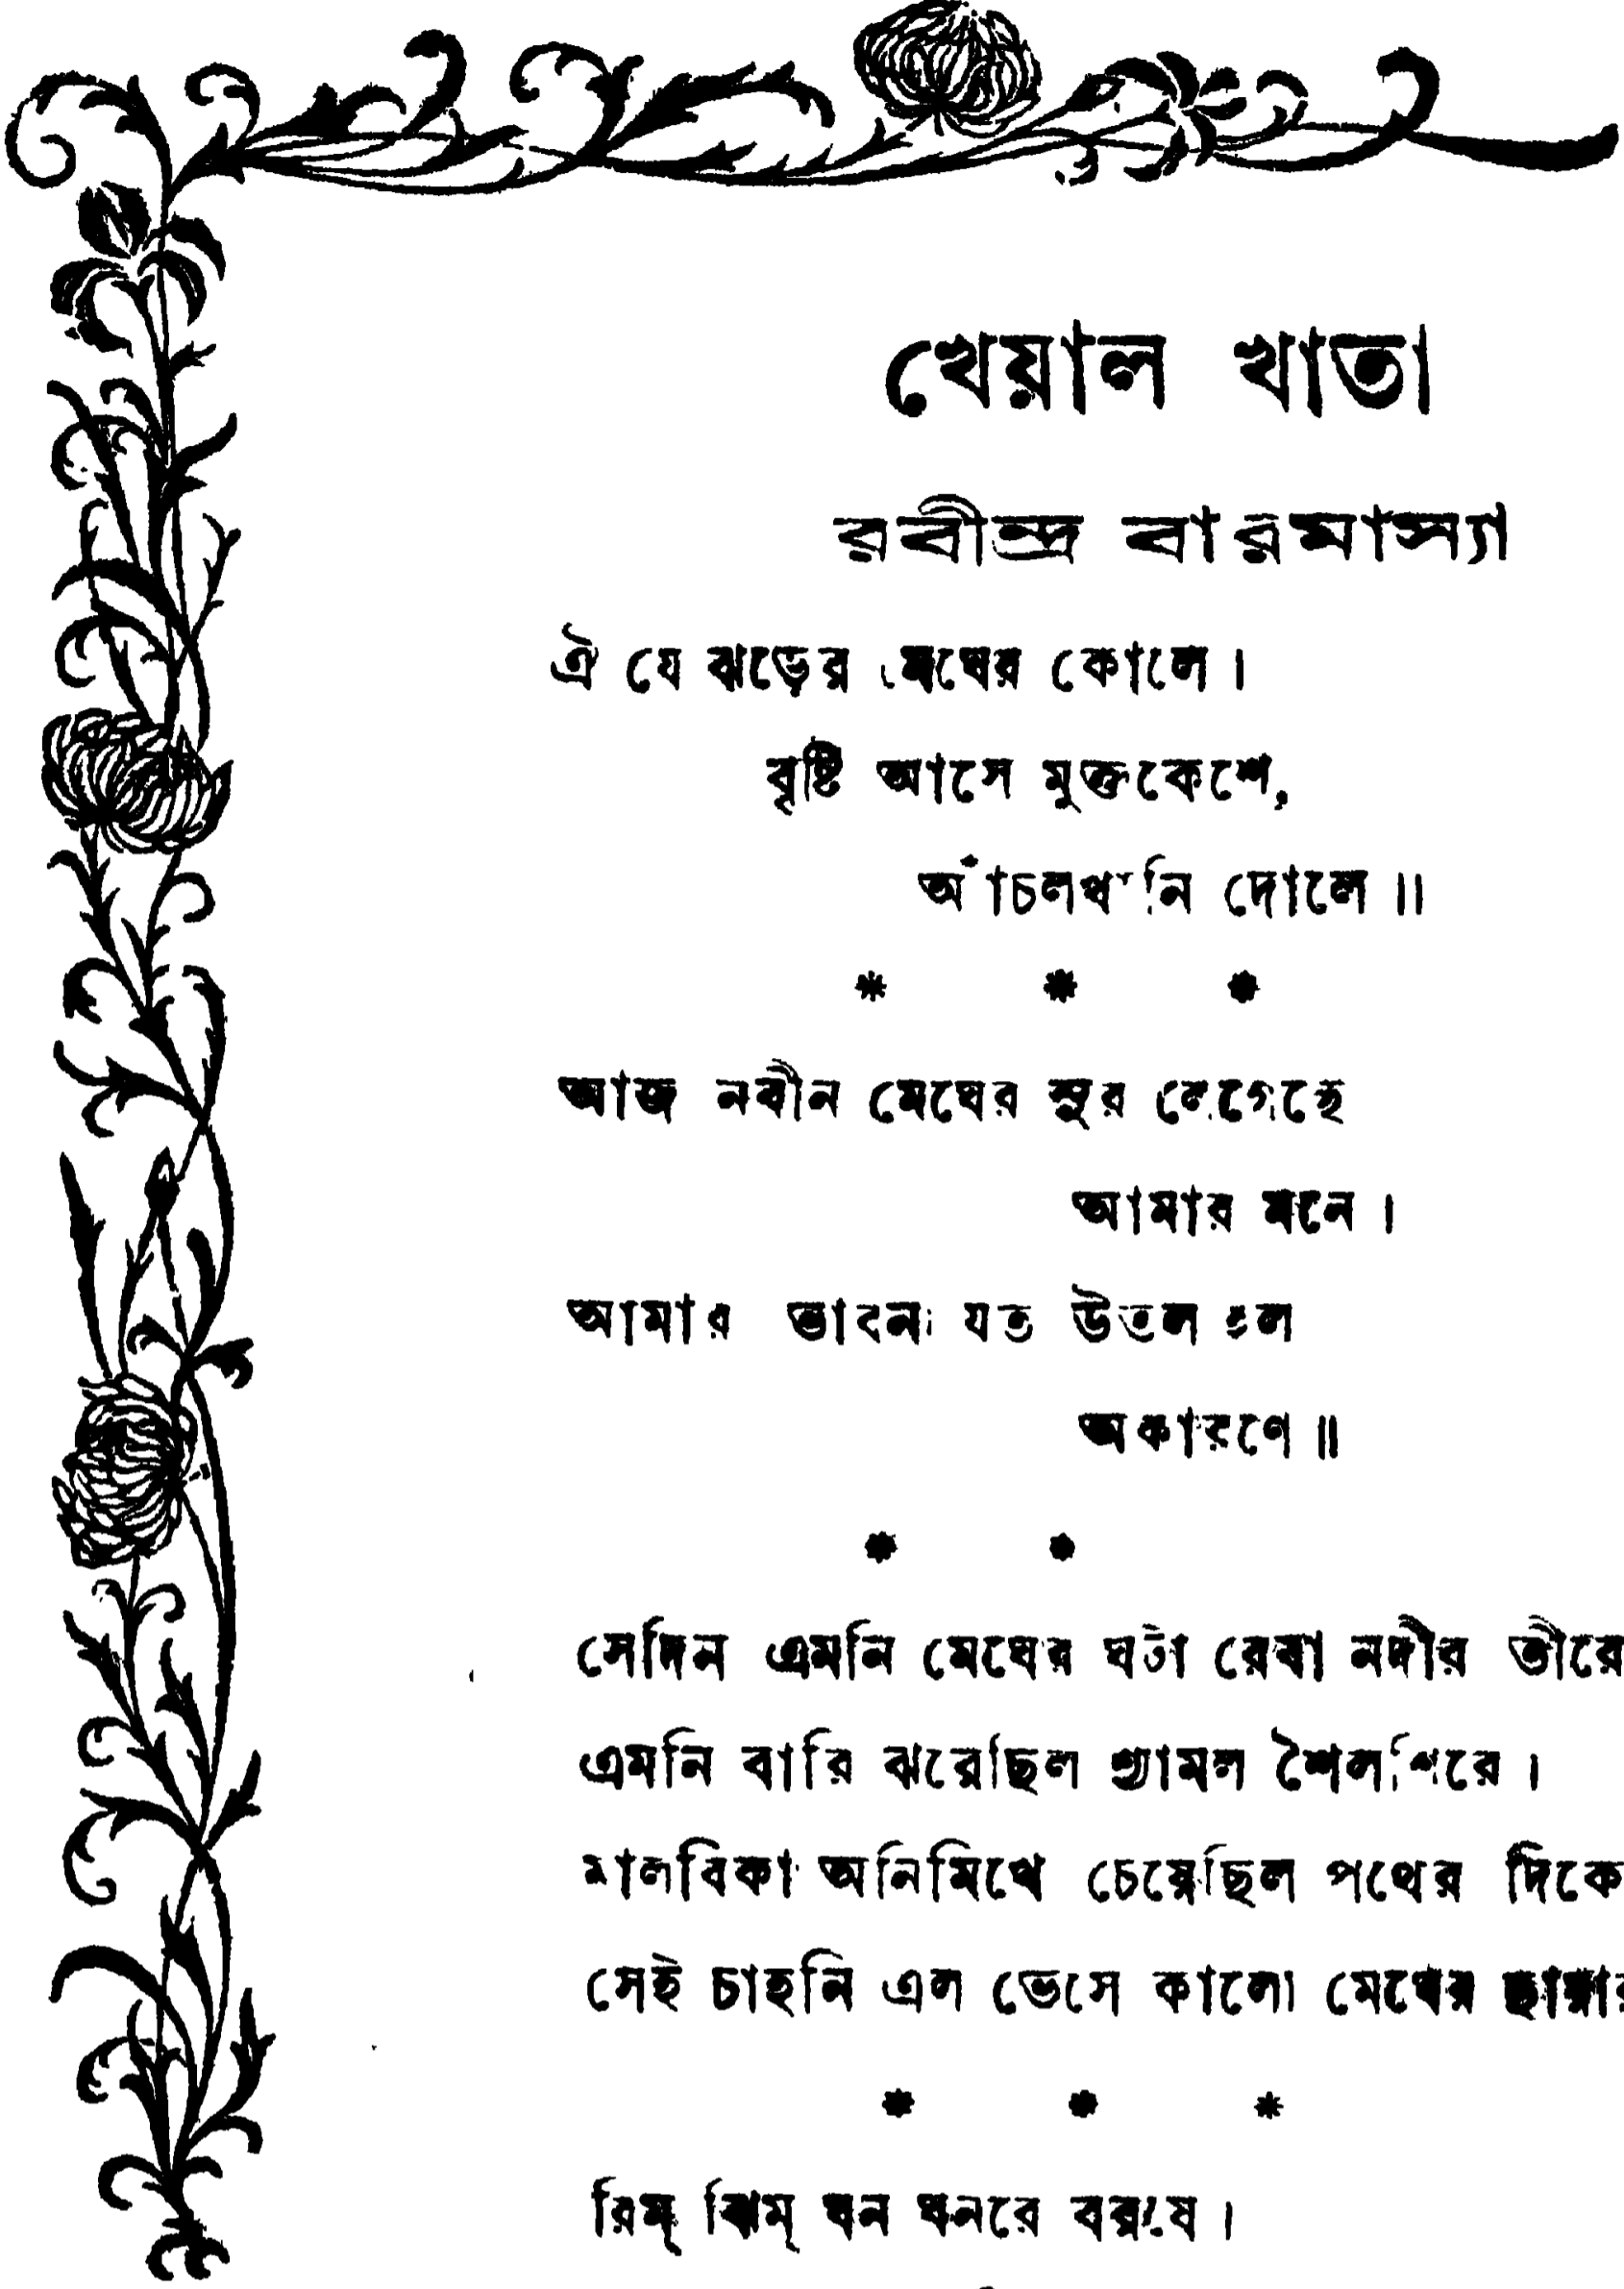 খেয়াল খাতা
রবীন্দ্র বারমাস্যা
ঐ যে ঝড়ের মেঘের কোলে।
বৃষ্টি আসে মুক্তকেশে,
আঁচলখানি দোলে॥
* * *
আজ নবীন মেঘের সুর লেগেছে
আমার মনে।
আমার ভাবনা যত উতল হল
অকারণে॥
* *
সেদিন এমনি মেঘের ঘটা রেবা নদীর তীরে
এমনি বারি ঝরেছিল শ্যামল শৈলশিরে।
মালবিকা অনিমিখে চেয়েছিল পথের দিকে
সেই চাহনি এল ভেসে কালো মেঘের ছায়ার
* * *
রিম্ ঝিম্ ঘন ঘনরে বরষে।